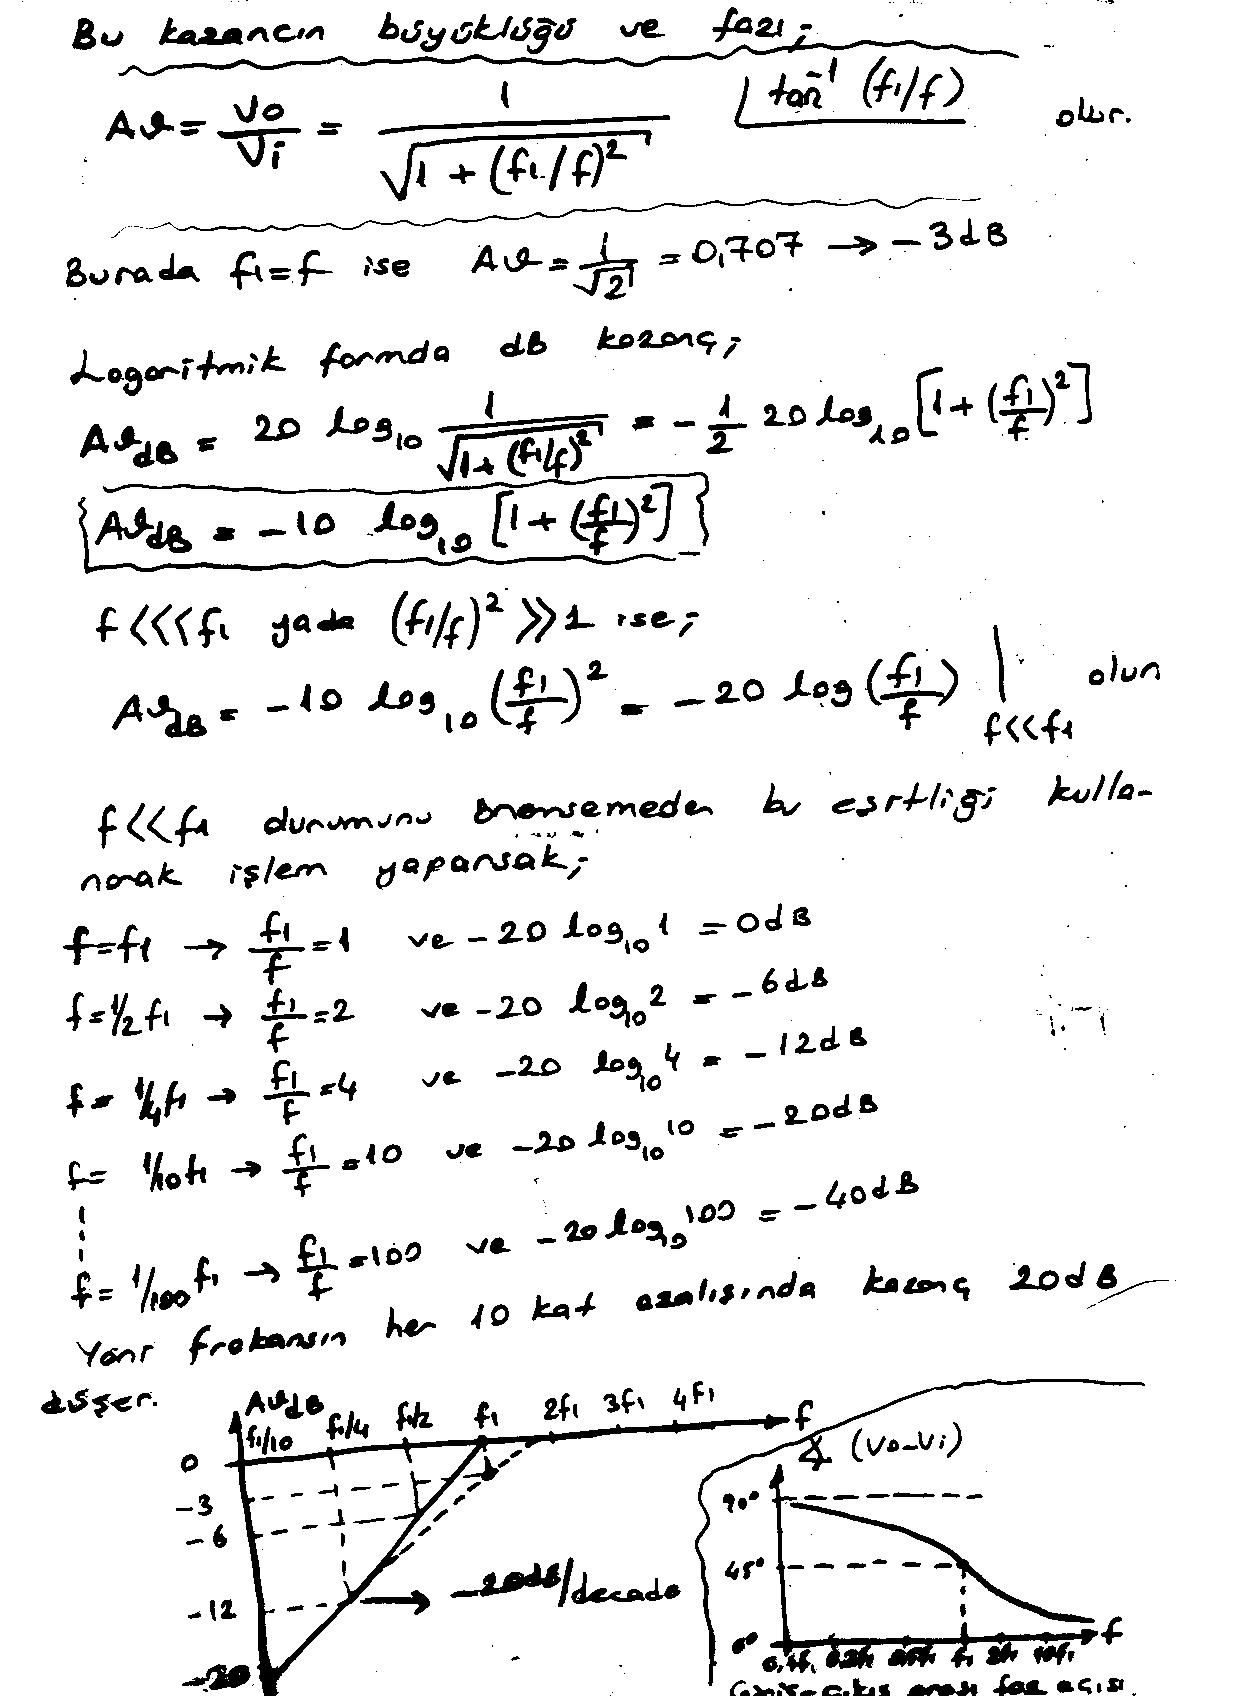 Bu kazancın büyüklüğü ve fazı;
Aϑ = Vo/Vi = 1/√(1 + (f1/f)²) ∠tan⁻¹ (f1/f) olur.
Burada f1=f ise Aϑ = 1/√2 = 0,707 → -3dB
Logaritmik formda dB kazanç;
AϑdB = 20 log10 1/√(1+(f1/f)²) = -1/2 20 log10 [1+(f1/f)²]
AϑdB = -10 log10 [1+(f1/f)²]
f<<<f1 yada (f1/f)² >>1 ise;
AϑdB = -10 log10 (f1/f)² = -20 log (f1/f) | f<<f1 olur
f<<f1 durumunu önemsemeden bu eşitliği kulla-
narak işlem yaparsak;
f=f1 → f1/f =1 ve -20 log10 1 = 0dB
f=1/2 f1 → f1/f =2 ve -20 log10 2 = -6dB
f= 1/4 f1 → f1/f =4 ve -20 log10 4 = -12dB
f= 1/10 f1 → f1/f =10 ve -20 log10 10 = -20dB
f= 1/100 f1 → f1/f =100 ve -20 log10 100 = -40dB
Yani frekansın her 10 kat azalışında kazanç 20dB
düşer.
AϑdB
f1/10 f1/4 f1/2 f1 2f1 3f1 4f1 f
0
-3
-6
-12
-20
→ -20dB/decade
∡ (Vo-Vi)
90°
45°
0°
0,1f1 0.2f1 0.5f1 f1 2f1 10f1 f
Giriş-çıkış arası faz açısı.